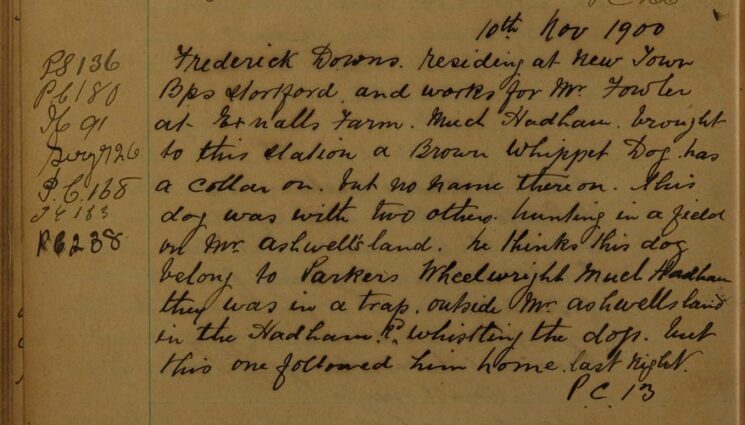 10th Nov 1900
PS 136
PC 180
PC 91
Sergt 26
P.C. 168
183
PC 238
Frederick Downs. residing at New Town
Bps stortford and works for Mr. Fowler
at Exnalls Farm. Much Hadham. brought
to this station a Brown Whippet Dog. has
a collar on. but no name thereon. this
dog was with two others. hunting in a field
on Mr. Ashwell's land. he thinks this dog
belong to Parkers Wheelwright Much Hadham
they was in a trap. outside Mr. Ashwells land
in the Hadham. Rd. whistling the dogs. but
this one followed him home. last night.
P.C. 13